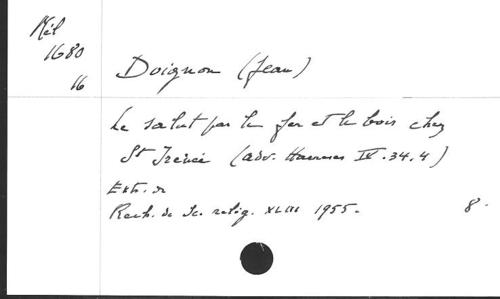 Mél
1680
16
Doignon (Jean)
Le salut par le fer et le bois chez
St Irénée (adv. Haereses IV.34,4)
Extr. de
Rech. de Sc. relig. XLIII 1955.
8°